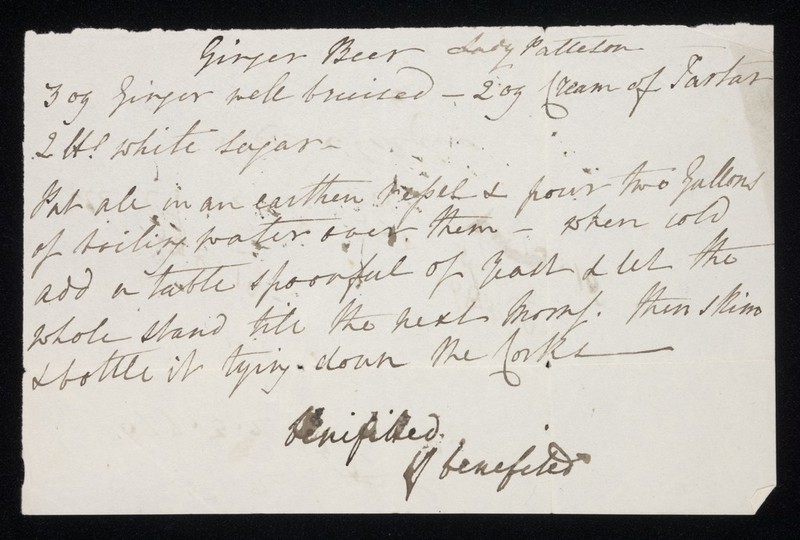 Ginger Beer Lady Patteson
3 oz Ginger well bruised - 2 oz Cream of Tartar
2 lbs. white sugar -
Put all in an earthen vessel & pour two Gallons
of boiling water over them - when cold
add a table spoonful of yeast & let the
whole stand till the next Morng. then skim
& bottle it tying down the Corks
benifitted
benefited